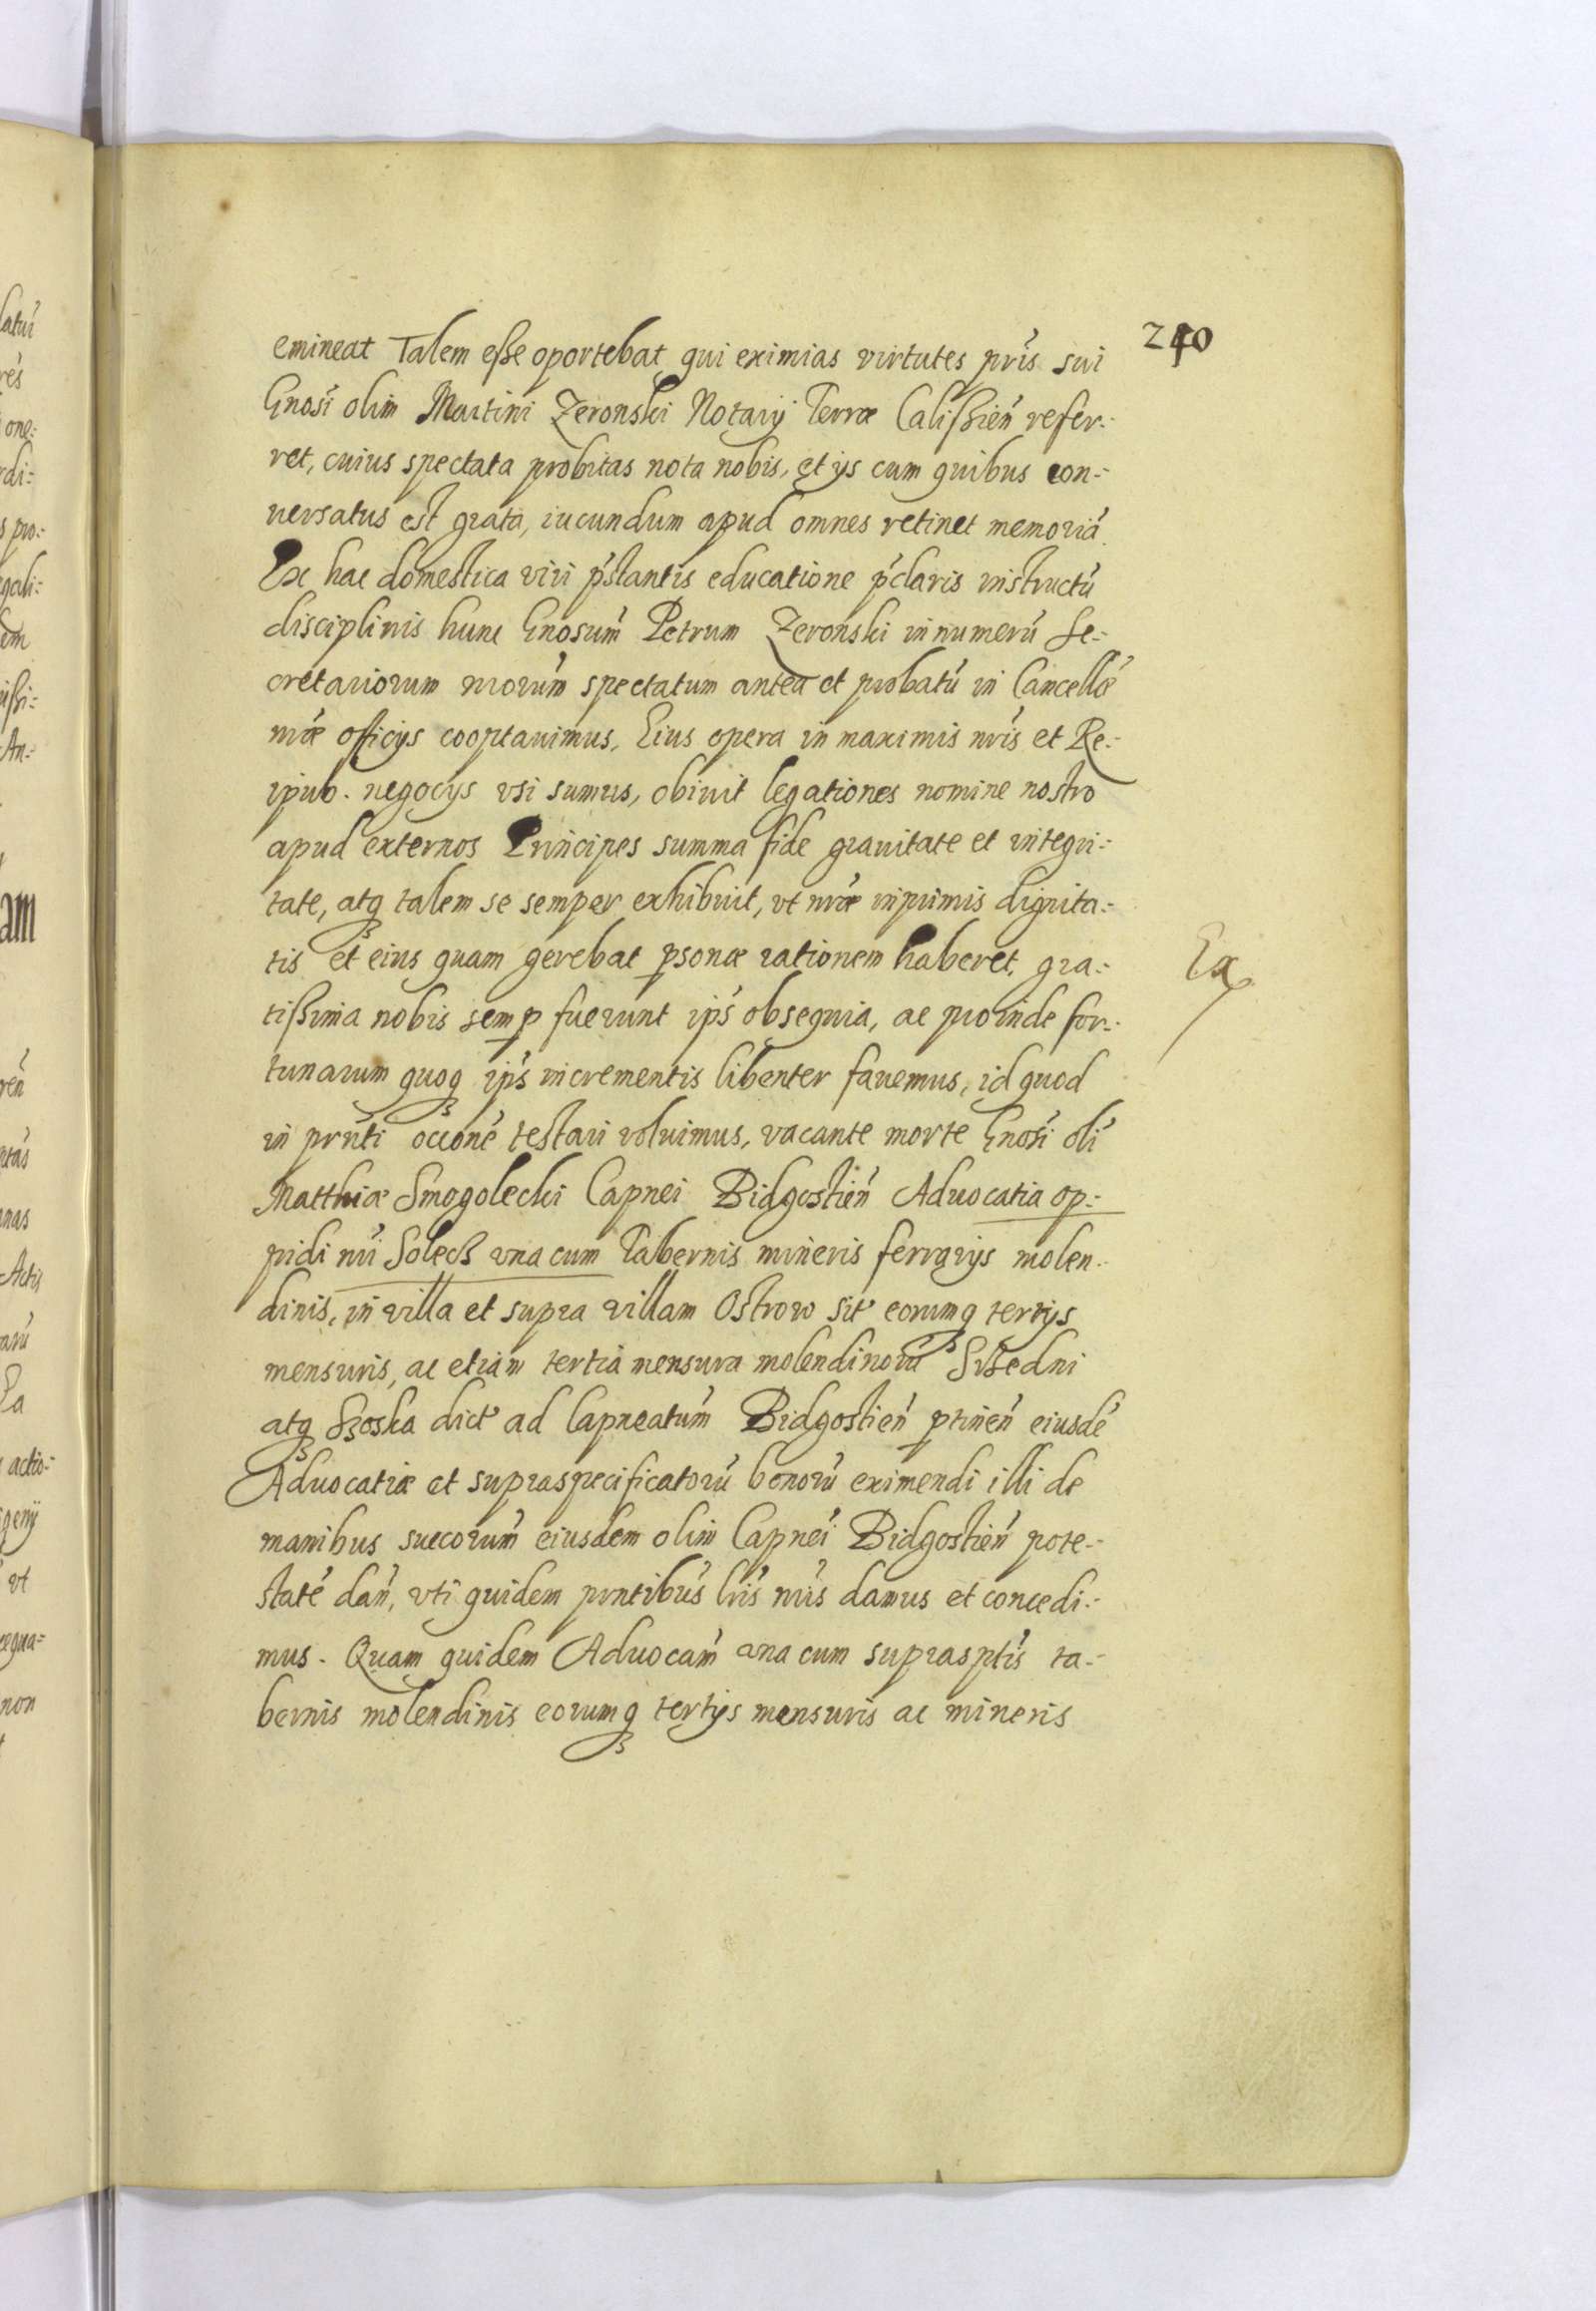 240
emineat Talem esse oportebat qui eximias virtutes pris sui
Gnosi olim Martini Zeronski Notarij Terræ Calissień refer-
ret, cuius spectata probitas nota nobis, et ijs cum quibus con-
uersatus est grata, iucundum apud omnes retinet memoriá.
Ex hac domestica viri pŕstantis educatione pŕclaris instructú
disciplinis hunc Gnosum Petrum Zeronski in numerú Se-
cretariorum nrorum spectatum antea et probatú in Cancellæ
nræ officijs cooptauimus, Eius opera in maximis nris et Re-
ipub. negocijs vsi sumus, obiuit legationes nomine nostro
apud externos Principes summa fide grauitate et integri-
tate, atq3 talem se semper exhibuit, vt nræ inprimis dignita-
tis et eius quam gerebat psonæ rationem haberet, gra-
Ex
tissima nobis semp fuerunt ips obsequia, ac proinde for-
tunarum quoq3 ips incrementis libenter fauemus, id quod
in prnti occone testari voluimus, vacante morte Gnosi oli
Matthiæ Smogolecki Capnei Bidgostień Aduocatia op-
pidi nri Solecz vna cum Tabernis mineris ferrarijs molen-
dinis, in villa et supra villam Ostrow sit eorumq3 tertijs
mensuris, ac etiam tertia mensura molendinorú Srzedni
atq3 Szoska dict ad Capneatum Bidgostień ptineń eiusdé
Aduocatiæ et supraspecificatorú bonorú eximendi illi de
manibus suecorum eiusdem olim Capnei Bidgostień pote-
staté dań, vti quidem prntibus lris nris damus et concedi-
mus. Quam quidem Aduocam vna cum suprasptis ta-
bernis molendinis eorumq3 tertijs mensuris ac mineris